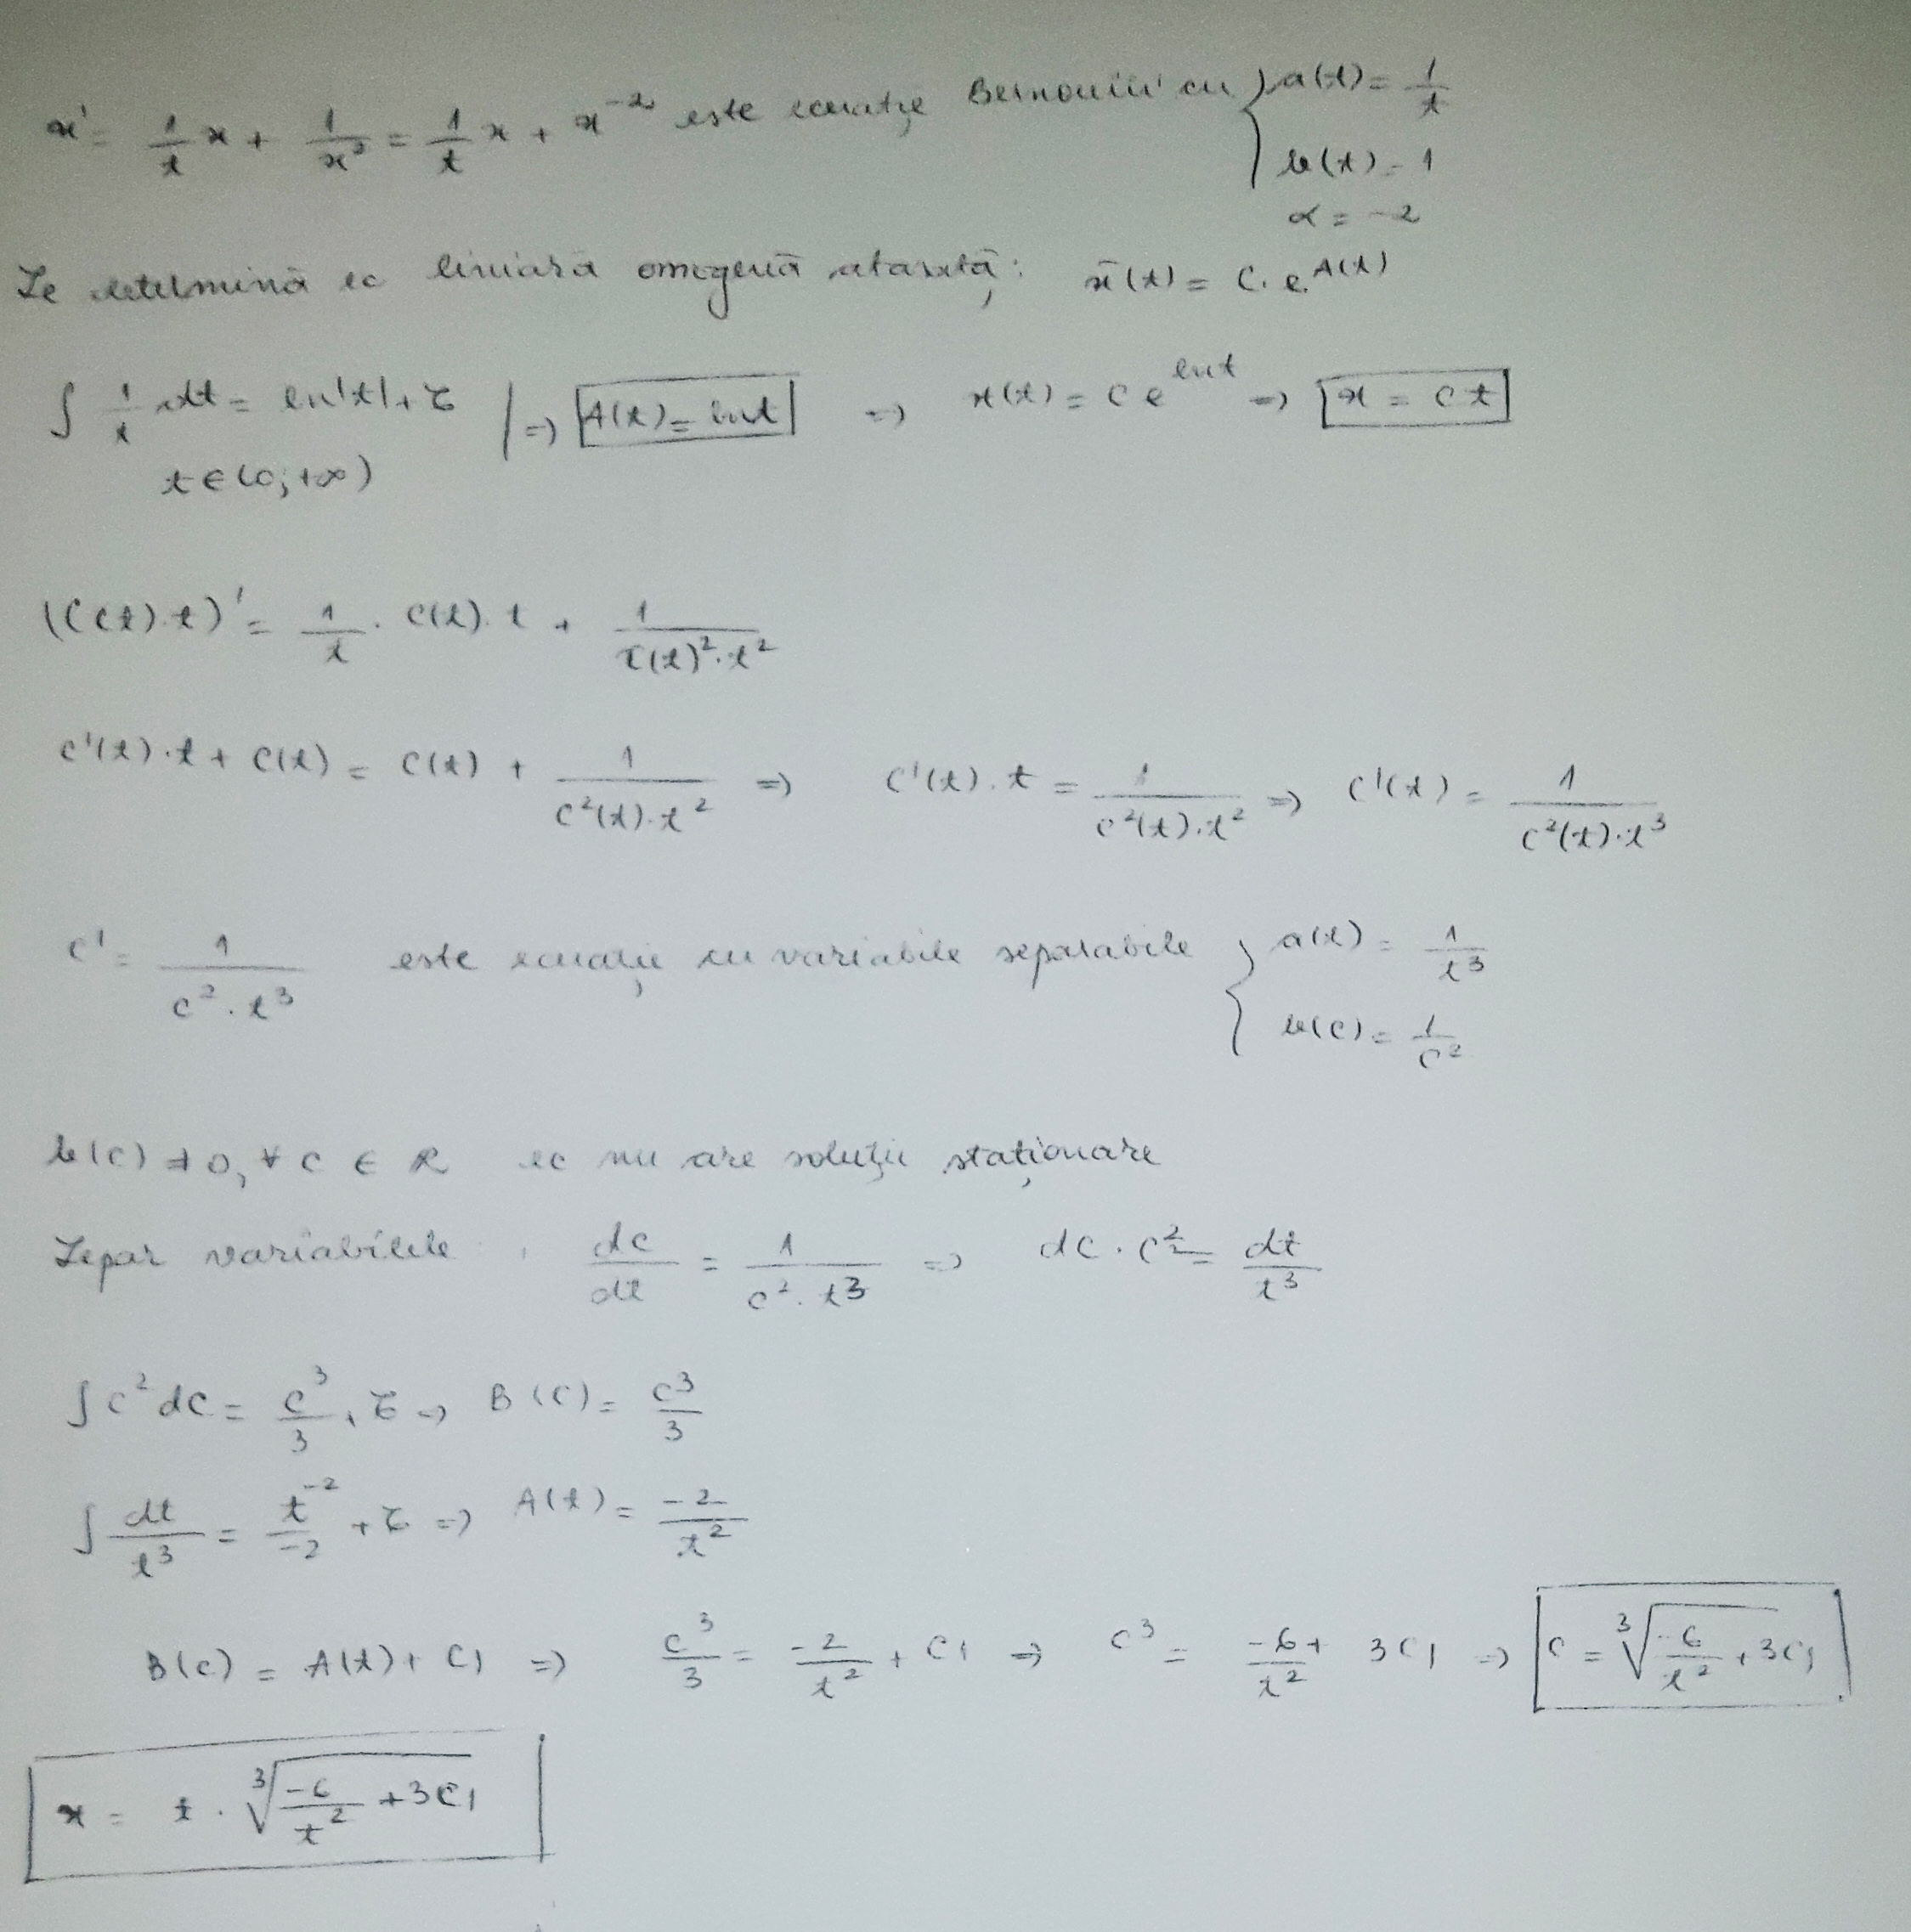 x' = 1/t x + 1/x² = 1/t x + x⁻² este ecuație Bernoulli cu { a(t) = 1/t
b(t) = 1
α = -2
Se determină ec liniară omogenă atașată: x̄(t) = C · e^A(t)
∫ 1/t dt = ln|t| + C
t ∈ (0; +∞) | => A(t) = ln t => x(t) = C e^ln t => x = C t
(C(t) · t)' = 1/t · C(t) · t + 1/(C(t)² · t²)
C'(t) · t + C(t) = C(t) + 1/(C²(t) · t²) => C'(t) · t = 1/(C²(t) · t²) => C'(t) = 1/(C²(t) · t³)
C' = 1/(C² · t³) este ecuație cu variabile separabile { a(t) = 1/t³
b(C) = 1/C²
b(C) ≠ 0, ∀ C ∈ R ec nu are soluții staționare
Separ variabilele : dC/dt = 1/(C² · t³) => dC · C² = dt/t³
∫ C² dC = C³/3 + C => B(C) = C³/3
∫ dt/t³ = t⁻²/-2 + C => A(t) = -2/t²
B(C) = A(t) + C1 => C³/3 = -2/t² + C1 => C³ = -6/t² + 3C1 => C = ∛(-6/t² + 3C1)
x = t · ∛(-6/t² + 3C1)